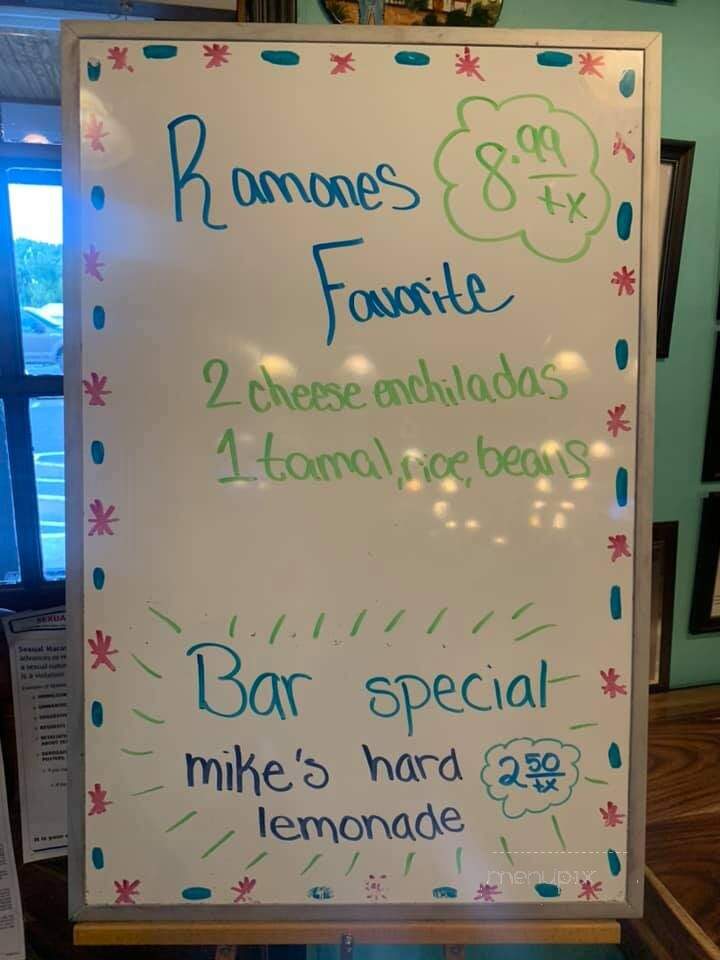 Ramones
8.99
tx
Favorite
2 cheese enchiladas
1 tamal, rice, beans
Bar special
mike's hard
lemonade
2 50
tx
menupix